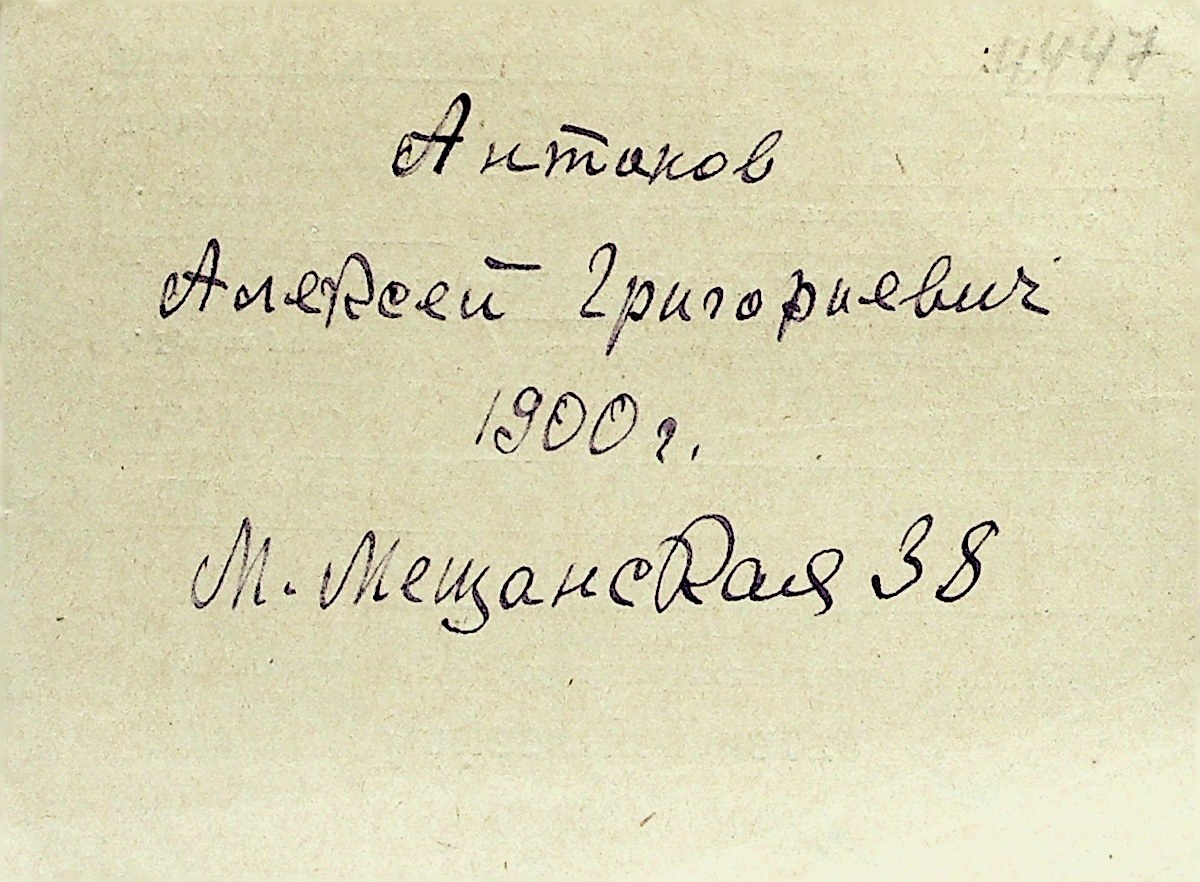 Антонов
Алексей Григориевич
1900 г.
М. Мещанская 38